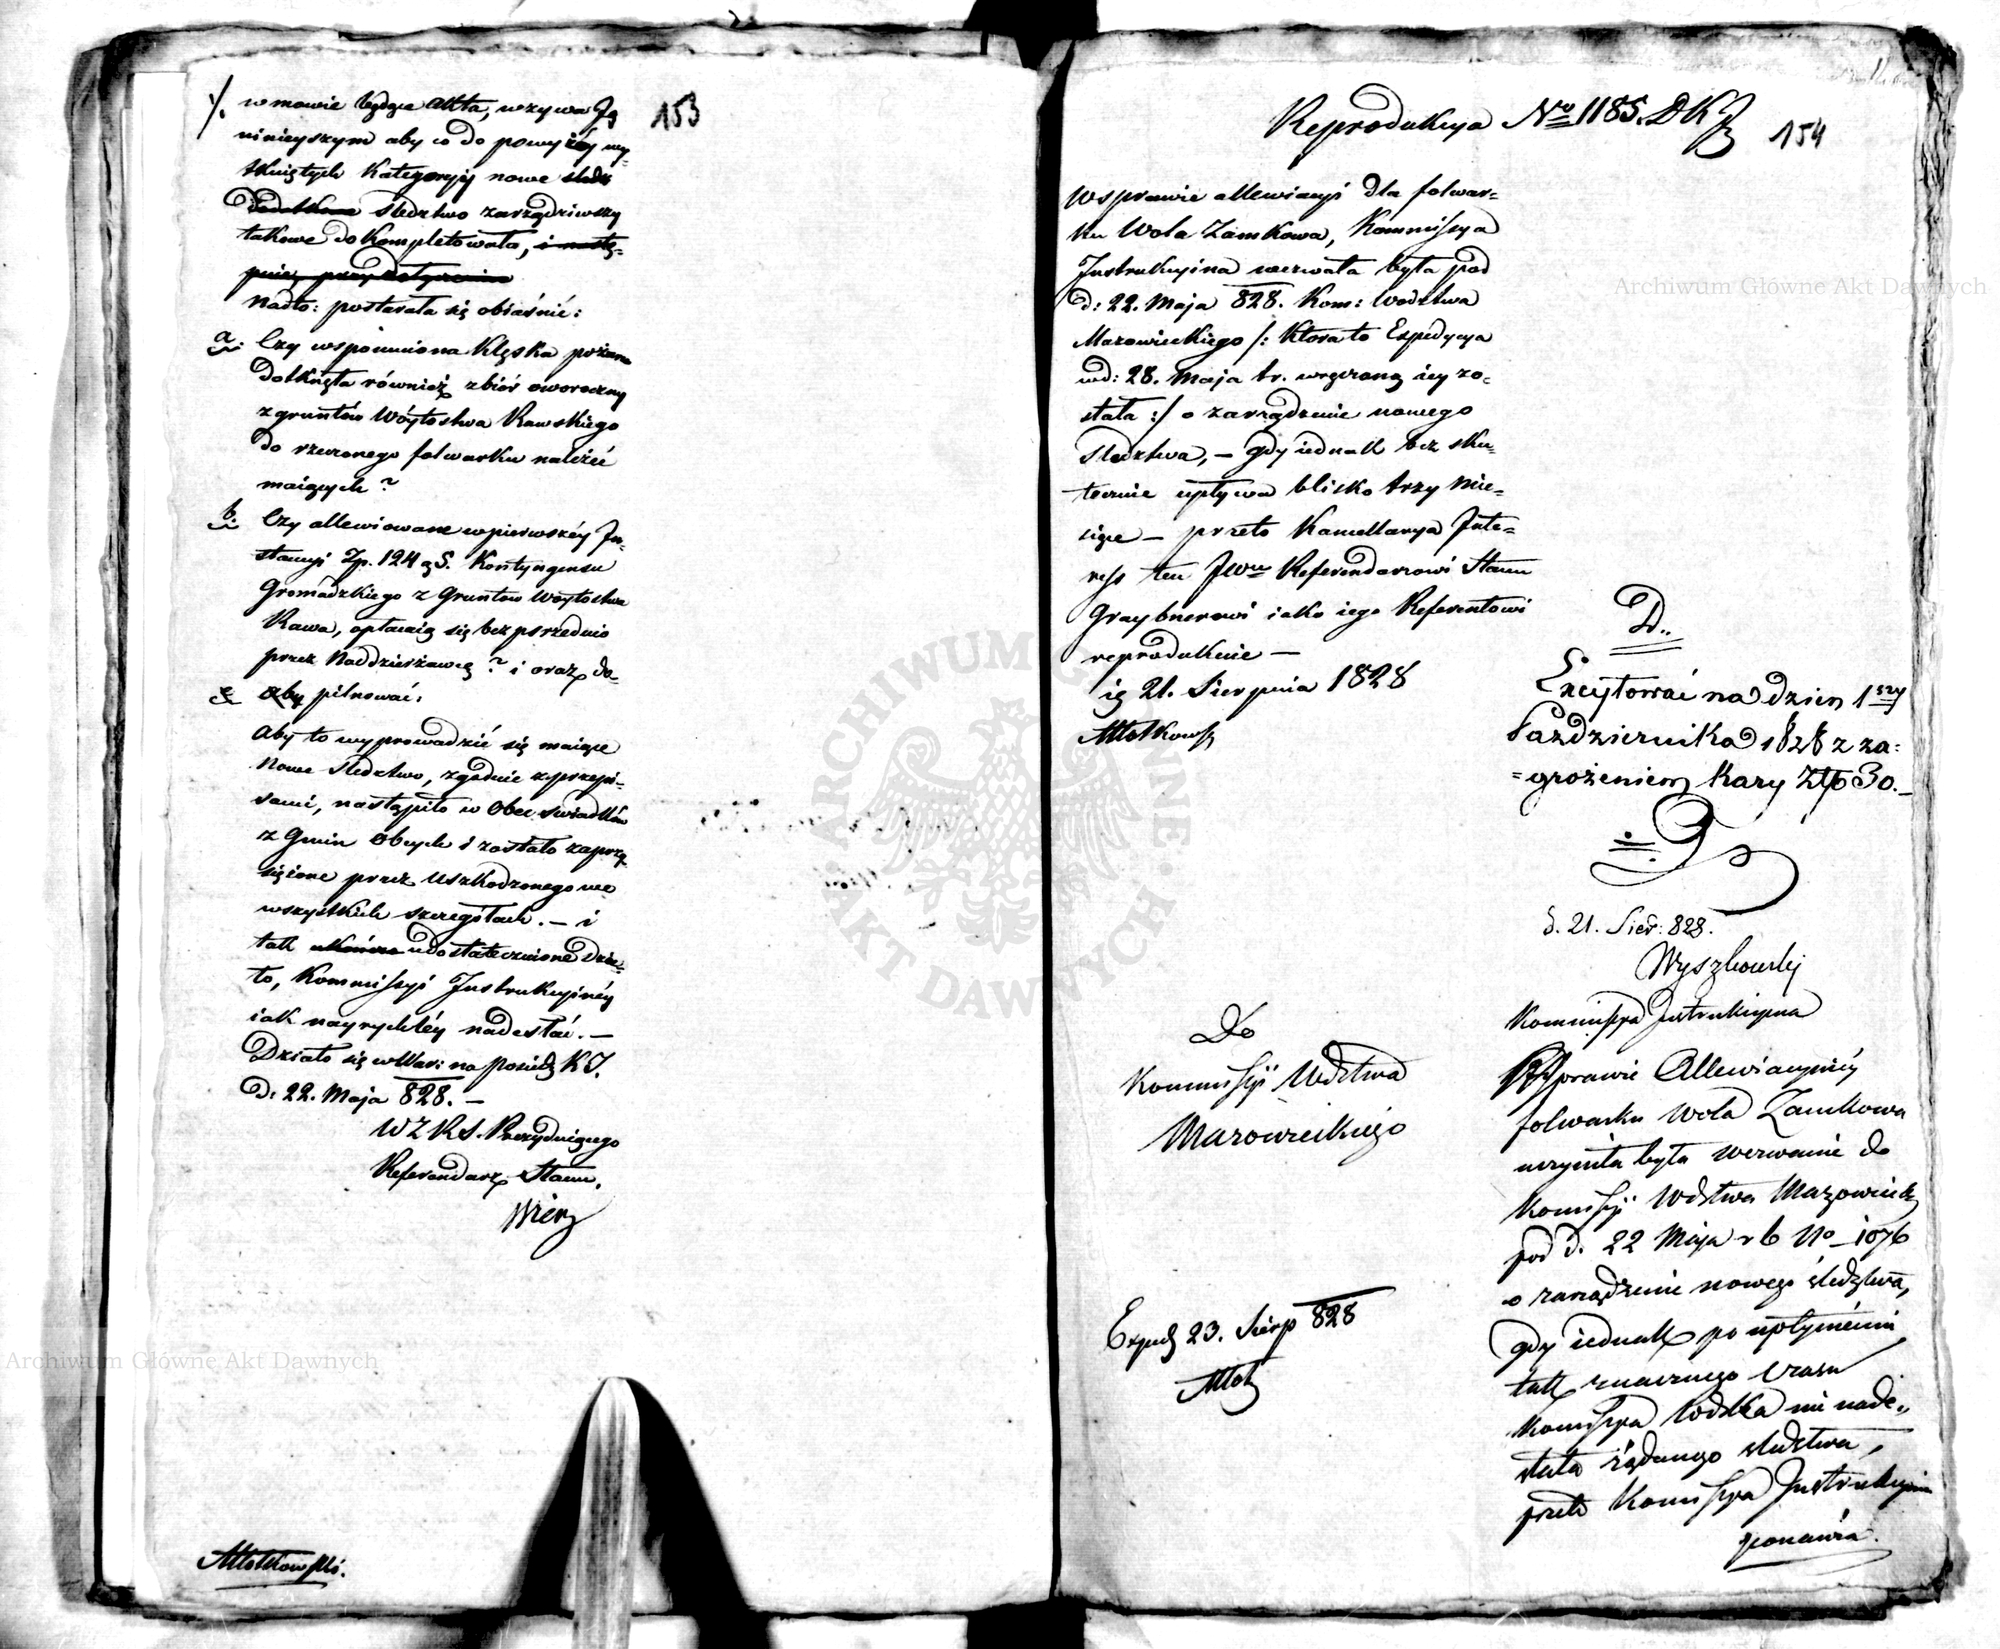 153
·/. w mowie będące Akta, wzywa Ją
ninieyszym aby co do powyżéy wy-
tkniętych Kategoryi nowe
dodatkowe śledztwo zarządziwszy
takowe do kompletowała, i nastę-
pnie przy
Nadto: postarała się obiaśnić:
a: Czy wspomniona Klęska pożaru
dotknęła również zbiór oworoczny
z gruntów Wóytostwa Rawskiego
do rzeczonego folwarku należeć
maiących?
b. Czy allewiowane w pierwszéy In-
stancyi Zp. 124 g 5. Kontyngensu
Gromadzkiego z Gruntów Wóytostwa
Rawa, opłacaią się bezpośrednio
przez Naddzierżawcę? i oraz do-
c aby pilnować:
Aby to wyprowadzić się maiące
Nowe śledztwo, zgodnie z przepi-
sami, nastąpiło w Obec świadków
z Gmin Obcych i zostało zaprzy-
siężone przez Uszkodzonego we
wszystkich szczegółach. – i
tak udostatecznione dzie-
ło, Kommissyi Instrukcyinéy
iak nayrychléy nadesłać. –
Działo się w War: na posiedz K I.
D: 22. Maja 828. –
W Z R S. Prezyduiącego
Referendarz Stanu.
Młotkowski.
Reprodukcya No 1185. D K J
154
W sprawie allewiacyi dla folwar-
ku Wola Zamkowa, Kommissya
Instrukcyina wezwała była pod
d: 22. Maja 828. Kom: Wodztwa
Mazowieckiego /: Która to Expedycya
wd: 28. Maja t.r. wręczoną iey zo-
stała :/ o zarządzenie nowego
śledztwa, – gdy iednak bez sku-
tecznie upływa blisko trzy mie-
siące – przeto Kancellarya Inte-
ress ten JWu Referendarzowi Stanu
Graybnerowi iako iego Referentowi
reprodukuie –
ię 21. Sierpnia 1828
Młotkowsk
D..
Excytować na dzień 1szy
Października 1828 z za=
=grożeniem Kary Złp 30. –
d. 21. Sier: 828.
Wyszkowskj
Do
Komissyi Wdztwa
Mazowieckiego
Exped 23. Sierp 828
Młot
Kommissya Instrukcyina
W Sprawie Allewiacyinéy
folwarku Wola Zamkowa
uczyniła była wezwanie do
Komissyi Wdztwa Mazowieck
pod d. 22 Maja r b No 1076
o zarządzenie nowego śledztwa,
gdy iednak po upłynieniu
tak znacznego czasu
Komissya Wdzka nie nade„
słała żądanego śledztwa,
przeto Komissya Instrukcyina
ponawia.
Archiwum Główne Akt Dawnych
Archiwum Główne Akt Dawnych
ARCHIWUM GŁÓWNE AKT DAWNYCH